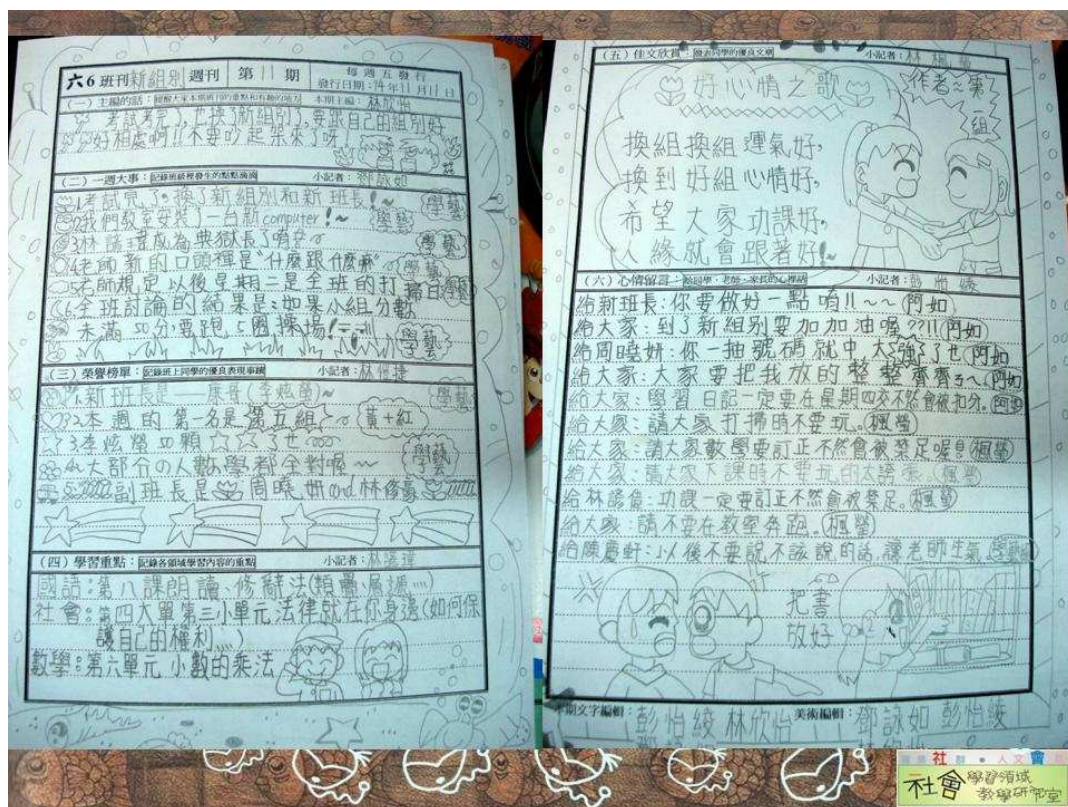 六6班刊 新組別 週刊 第11期 每週五發行
發行日期：94年11月11日
(一) 主編的話：提醒大家本期班刊的重點和有趣的地方 本期主編：林欣怡
考試考完了,也換了新組別了,要跟自己的組別好
好相處啊!!不要吵起架來了呀!
(二) 一週大事：記錄班級裡發生的點點滴滴 小記者：鄧詠如
1.考試完了。換了新組別和新班長!~ 學藝
2.我們教室安裝了一台新computer!~
3.林 成為典獄長了唷 學藝
4.老師新的口頭禪是"什麼跟什麼嘛" 學藝
5.老師規定以後星期二是全班的打掃日 學藝
6.全班討論的結果是:如果小組分數
未滿50分,要跑5圈操場! 學藝
(三) 榮譽榜單：記錄班上同學的優良表現事蹟 小記者：林 捷
1.新班長是——康哥(李炫螢)~
2.本週的第一名是第五組 黃+紅
3.李炫螢 顆☆☆了也
4.大部分の人數學都全對喔~ 學藝
副班長是 周曉妍and林修
(四) 學習重點：記錄各領域學習內容的重點 小記者：林
國語:第八課朗讀、修辭法(類疊、層遞
社會:第四大單第三小單元法律就在你身邊(如何保
護自己的權利
數學:第六單元 小數的乘法
(五) 佳文欣賞：發表同學的優良文章 小記者：林楓螢
好心情之歌
作者~第 組
換組換組運氣好,
換到好組心情好,
希望大家功課好,
人緣就會跟著好!~
(六) 心情留言：給同學、老師、家長的心裡話 小記者：彭怡綾
給新班長:你要做好一點唷!!~~(阿如)
給大家:到了新組別要加加油喔??!!(阿如)
給周曉妍:你一抽號碼就中太強了也(阿如)
給大家:大家要把我放的整整齊齊ㄛ~(阿如)
給大家:學習日記一定要在星期四交不然會被扣分。(阿如)
給大家:請大家打掃時不要玩。(楓螢)
給大家:請大家數學要訂正不然會被禁足喔!(楓螢)
給大家:請大家下課時不要玩的太誇張。(楓螢)
給林 :功課一定要訂正不然會被禁足。(楓螢)
給大家:請不要在教室奔跑。(楓螢)
給陳慶軒:以後不要說不該說的話,讓老師生氣(學藝)
把書
放好
本期文字編輯：彭怡綾 林欣怡 美術編輯：鄧詠如 彭怡綾
社群 • 人文 會
社會 學習領域
教學研究室